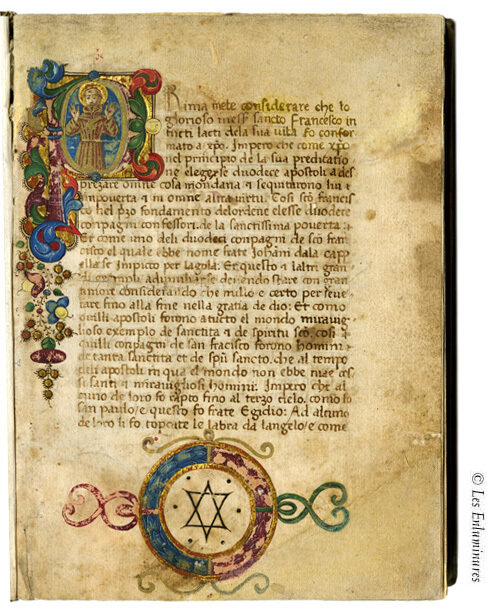 Rima mete considerare che lo
glorioso mess. sancto Francesco in
tucti lacti dela sua vita fo confor
mato a xpo. Impero che come xpo
nel principio de la sua predicatio
ne elegerse duodece apostoli a des
prezare omne cosa mondana e sequiturono lui i
impoverta e in omne altra virtu. Cosi sco francis
co nel pzo fondamento delordene elesse duodece
compagni confessori de la sanctissima poverta:
Et come uno deli duodeci conpagni de sco fran
cisco el quale ebbe nome frate Johani dala capp
ella se impicco per lagola. Et questo i laltri gran
di exempli adiumbar se deiendo stare con gran
amore considerando che nullo e certo per seve
rare fino alla fine nella gratia de dio: Et como
quilli apostoli forono a tucto el mondo miravig
lioso exemplo de sanctita e de spiritu sco, cosi
quilli conpagni de san fracisco forono homini
de tanta sanctita et de spu sancto. che al tempo
deli apostoli in qua el mondo non ebbe mae cos
si santi e miravigliosi homini: Impero che al
cuno de loro fo rapto fino al terzo cielo. como fo
san paulo/e questo fo frate Egidio: Ad alcuno
de loro li fo tochate le labra da langelo/e come
© Les Enluminures